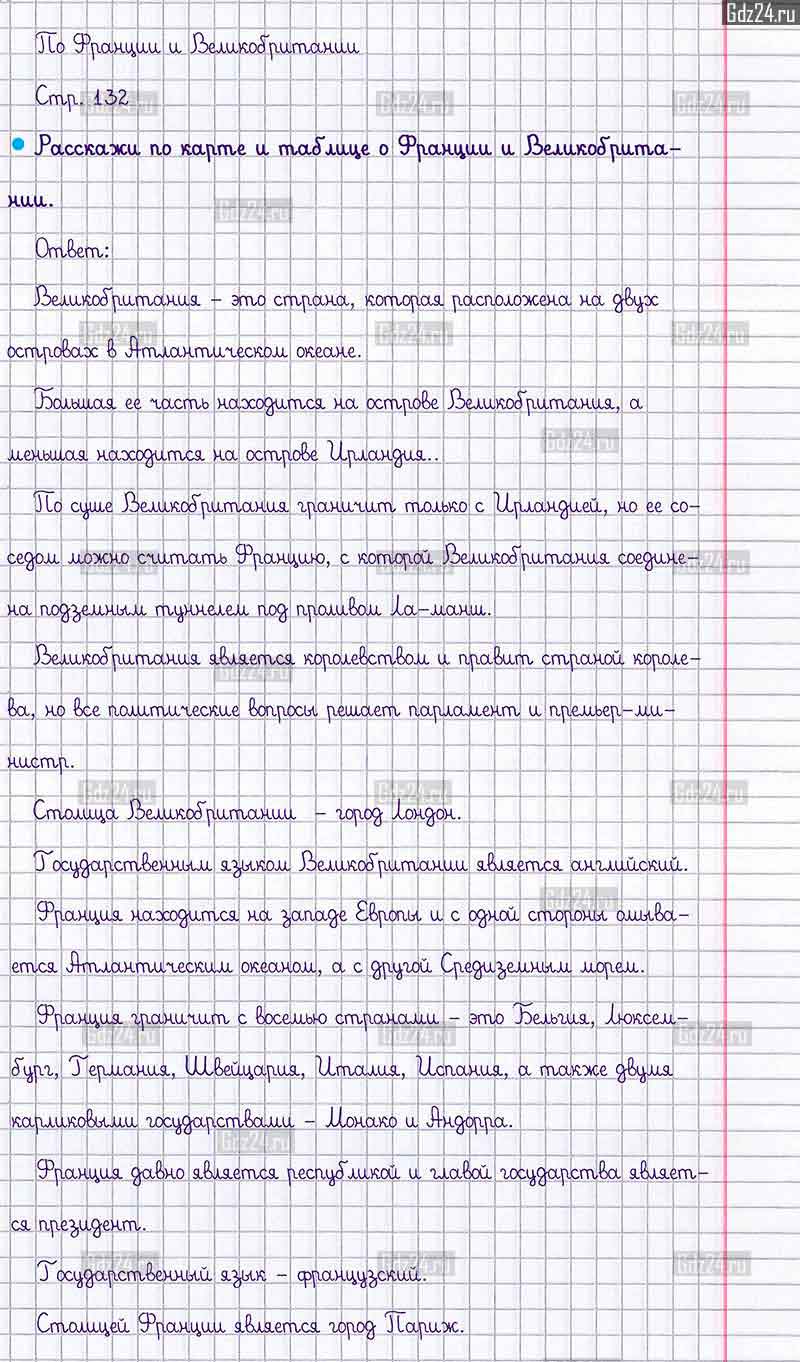 Gdz24.ru
По Франции и Великобритании
Стр. 132
Расскажи по карте и таблице о Франции и Великобрита-
нии.
Ответ:
Великобритания - это страна, которая расположена на двух
островах в Атлантическом океане.
Большая ее часть находится на острове Великобритания, а
меньшая находится на острове Ирландия..
По суше Великобритания граничит только с Ирландией, но ее со-
седом можно считать Францию, с которой Великобритания соедине-
на подземным туннелем под проливом Ла-манш.
Великобритания является королевством и правит страной короле-
ва, но все политические вопросы решает парламент и премьер-ми-
нистр.
Столица Великобритании - город Лондон.
Государственным языком Великобритании является английский.
Франция находится на западе Европы и с одной стороны омыва-
ется Атлантическим океаном, а с другой Средиземным морем.
Франция граничит с восемью странами - это Бельгия, Люксем-
бург, Германия, Швейцария, Италия, Испания, а также двумя
карликовыми государствами - Монако и Андорра.
Франция давно является республикой и главой государства являет-
ся президент.
Государственный язык - французский.
Столицей Франции является город Париж.